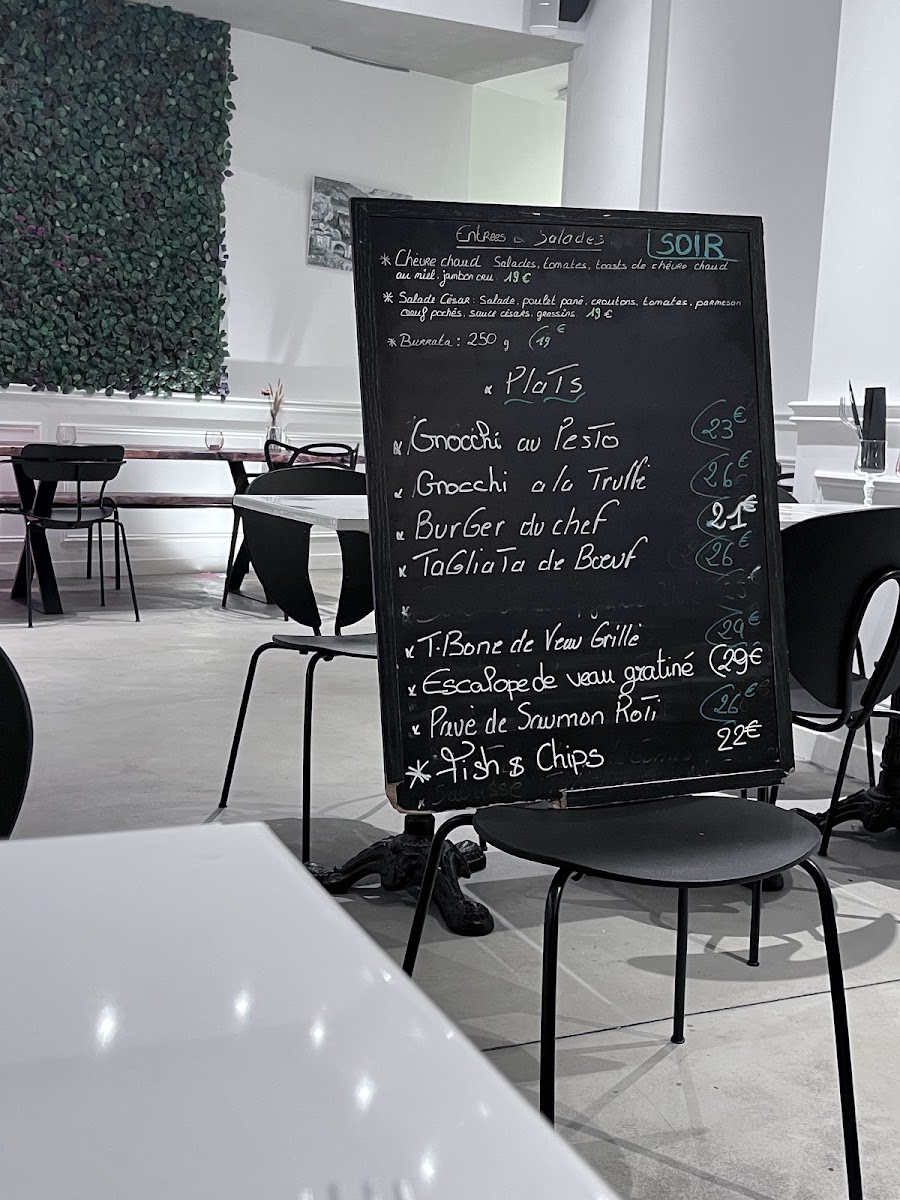 Entrées & Salades SOIR
* Chèvre chaud Salades, tomates, toasts de chèvre chaud
au miel, jambon cru 19€
* Salade César: Salade, poulet pané, croutons, tomates, parmesan
oeuf pochés, sauce césars, gressins 19€
* Burrata: 250 g 19€
* Plats
* Gnocchi au Pesto 23€
* Gnocchi a la Truffe 26€
* Burger du chef 21€
* Tagliata de Bœuf 26€
* T.Bone de Veau Grillé 29€
* Escalope de veau gratiné 29€
* Pavé de Saumon Roti 26€
* Fish & Chips 22€